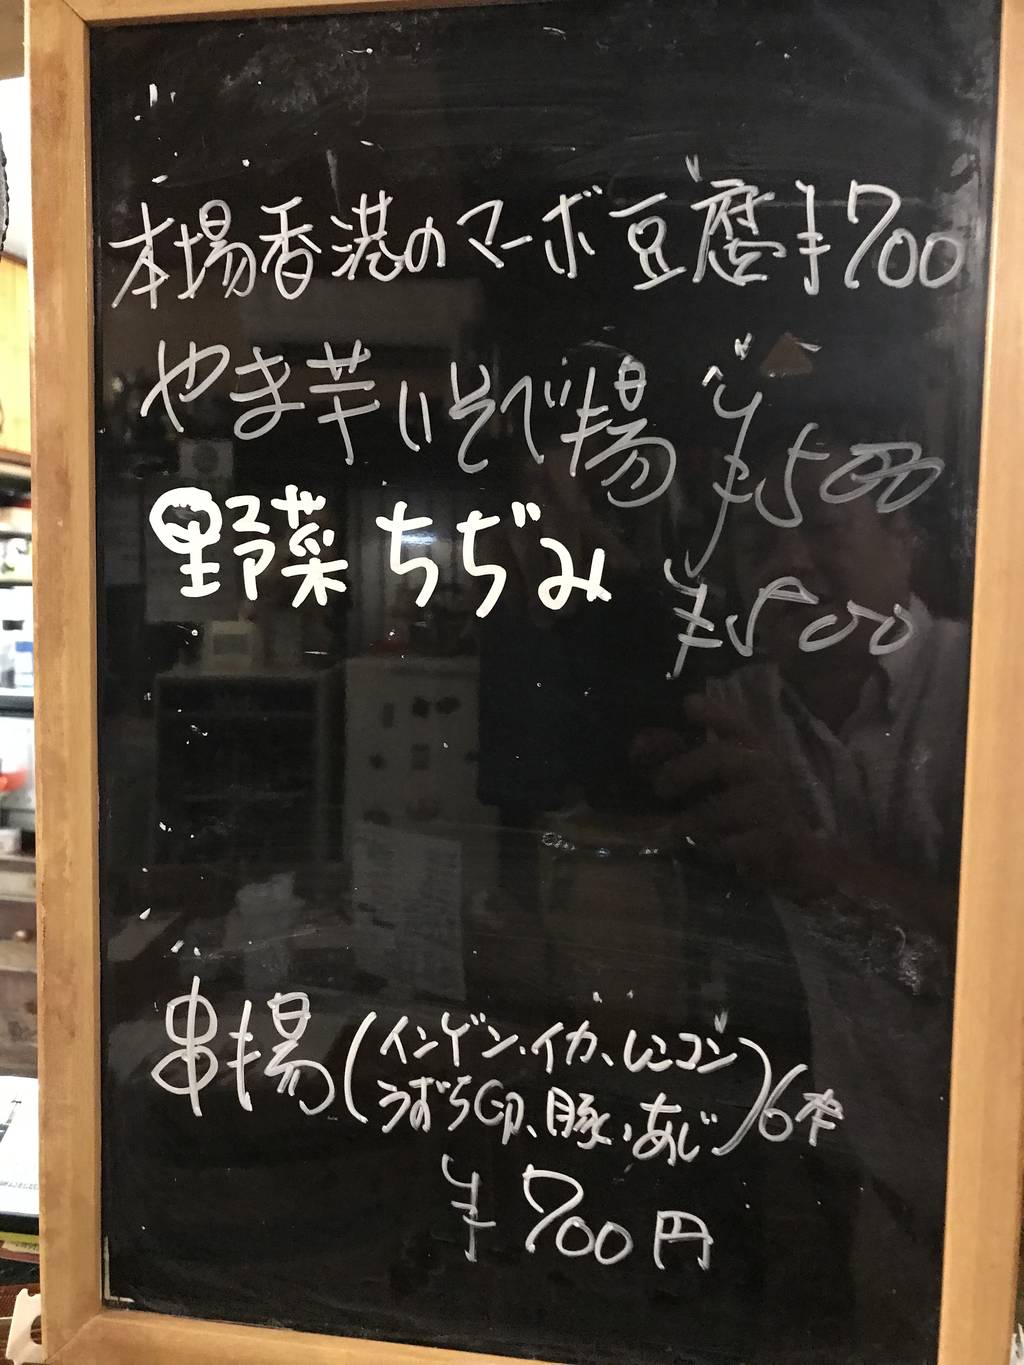 本場香港のマーボ豆腐¥700
やま芋いそべ揚 ¥500
野菜ちぢみ ¥500
串揚(インゲン、イカ、レンコン
うずら卵、豚、あじ)6本
¥700円